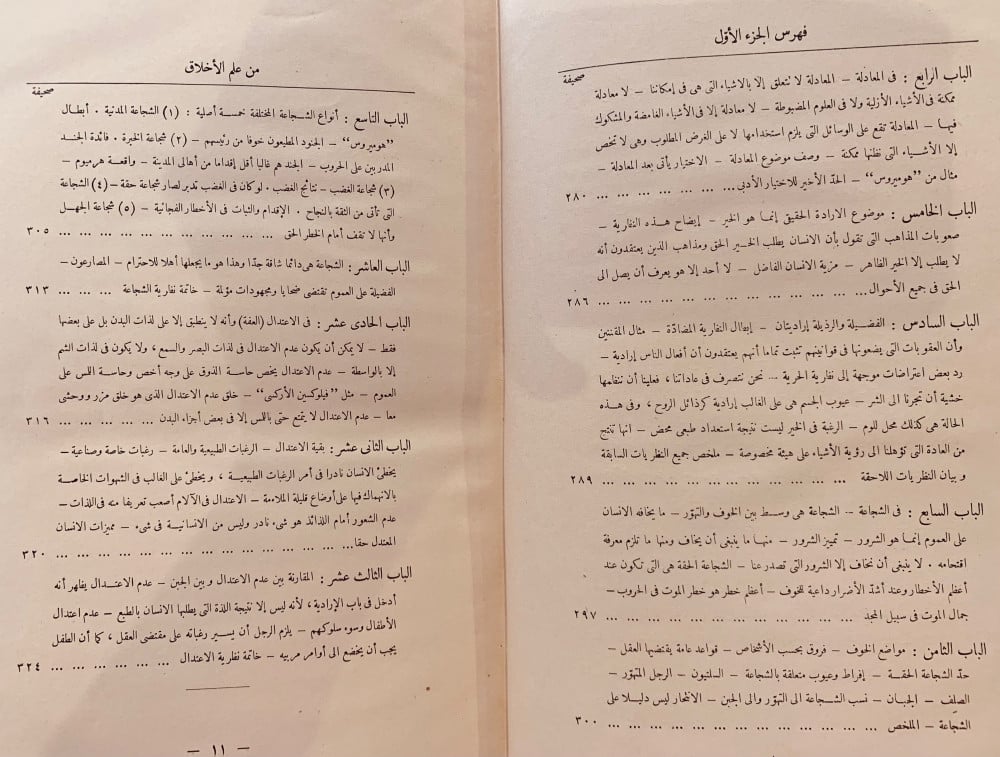 فهرس الجزء الأوّل
صحيفة
الباب الرابع : فى المعادلة – المعادلة لا تتعلق إلا بالاشياء التى هى فى إمكاننا – لا معادلة
ممكنة فى الأشياء الأزلية ولا فى العلوم المضبوطة – لا معادلة إلا فى الأشياء الغامضة والمشكوك
فيها – المعادلة تقع على الوسائل التى يلزم استخدامها لا على الغرض المطلوب وهى لا تخص
إلا الأشياء التى نظنها ممكنة – وصف موضوع المعادلة – الاختيار يأتى بعد المعادلة –
مثال من "هوميروس" – الحدّ الأخير للاختيار الأدبى ... ... ... ... ... ٢٨٠
الباب الخامس : موضوع الارادة الحقيق إنما هو الخير – إيضاح هذه النظرية –
صعوبات المذاهب التى تقول بأن الانسان يطلب الخير الحق ومذاهب الذين يعتقدون أنه
لا يطلب إلا الخير الظاهر – مزية الانسان الفاضل – لا أحد إلا هو يعرف أن يصل الى
الحق فى جميع الأحوال ... ... ... ... ... ... ... ... ... ... ٢٨٦
الباب السادس : الفضيلة والرذيلة إراديتان – إبطال النظرية المضادّة – مثال المقننين
وأن العقوبات التى يضعونها فى قوانينهم تثبت تماما أنهم يعتقدون أن أفعال الناس إرادية –
رد بعض اعتراضات موجهة إلى نظرية الحرية – نحن نتصرف فى عاداتنا ، فعلينا أن ننظمها
خشية أن تجرنا الى الشر – عيوب الجسم هى على الغالب إرادية كرذائل الروح ، وفى هذه
الحالة هى كذلك محل للوم – الرغبة فى الخير ليست نتيجة استعداد طبعى محض – انها تنتج
من العادة التى تؤهلنا الى رؤية الأشياء على هيئة مخصوصة – ملخص جميع النظريات السابقة
و بيان النظريات اللاحقة ... ... ... ... ... ... ... ... ٢٨٩
الباب السابع : فى الشجاعة – الشجاعة هى وسط بين الخوف والتهوّر – ما يخافه الانسان
على العموم إنما هو الشرور – تمييز الشرور – منها ما ينبغى أن يخاف ومنها ما تلزم معرفة
اقتحامه . لا ينبغى أن نخاف إلا الشرور التى تصدر عنا – الشجاعة الحقة هى التى تكون عند
أعظم الأخطار وعند أشدّ الأضرار داعية للخوف – أعظم خطر هو خطر الموت فى الحروب –
جمال الموت فى سبيل المجد ... ... ... ... ... ... ... ... ... ٢٩٧
الباب الثامن : مواضع الخوف – فروق بحسب الأشخاص – قواعد عامة يقتضيها العقل –
حدّ الشجاعة الحقة – إفراط وعيوب متعلقة بالشجاعة – السلتيون – الرجل المتهوّر –
الصلِف – الجبان – نسب الشجاعة الى التهوّر والى الجبن – الانتحار ليس دليلا على
الشجاعة – الملخص ... ... ... ... ... ... ... ... ... ... ٣٠٠
من علم الأخلاق
صحيفة
الباب التاسع : أنواع الشجاعة المختلفة خمسة أصلية : (١) الشجاعة المدنية . أبطال
"هوميروس" – الجنود المطيعون خوفا من رئيسهم – (٢) شجاعة الخبرة . فائدة الجند
المدربين على الحروب – الجند هم غالبا أقل إقداما من أهالى المدينة – واقعة هرميوم –
(٣) شجاعة الغضب – نتائج الغضب . لوكان فى الغضب تدبر لصار شجاعة حقة – (٤) الشجاعة
التى تأتى من الثقة بالنجاح . الإقدام والثبات فى الأخطار الفجائية – (٥) شجاعة الجهل
وأنها لا تقف أمام الخطر الحق ... ... ... ... ... ... ... ... ... ٣٠٥
الباب العاشر : الشجاعة هى دائما شاقة جدّا وهذا هو ما يجعلها أهلا للاحترام – المصارعون –
الفضيلة على العموم تقتضى ضحايا ومجهودات مؤلمة – خاتمة نظرية الشجاعة ... ... ... ٣١٣
الباب الحادى عشر : فى الاعتدال (العفة) وأنه لا ينطبق إلا على لذات البدن بل على بعضها
فقط – لا يمكن أن يكون عدم الاعتدال فى لذات البصر والسمع ، ولا يكون فى لذات الشم
إلا بالواسطة – عدم الاعتدال يخص حاسة الذوق على وجه أخص وحاسة اللمس على
العموم – مثل "فيلوكسين الأركسى" – خلق عدم الاعتدال الذى هو خلق مزر ووحشى
معا – عدم الاعتدال لا يتمتع حتى باللمس إلا فى بعض أجزاء البدن ... ... ... ... ... ٣١٦
الباب الثانى عشر : بقية الاعتدال – الرغبات الطبيعية والعامة – رغبات خاصة وصناعية –
يخطئ الانسان نادرا فى أمر الرغبات الطبيعية ، ويخطئ على الغالب فى الشهوات الخاصة
بالانهماك فيها على أوضاع قليلة الملاءمة – الاعتدال فى الآلام أصعب تعريفا منه فى اللذات –
عدم الشعور أمام اللذائذ هو شىء نادر وليس من الانسانية فى شىء – مميزات الانسان
المعتدل حقا ... ... ... ... ... ... ... ... ... ... ... ... ... ٣٢٠
الباب الثالث عشر : المقارنة بين عدم الاعتدال و بين الجبن – عدم الاعتدال يظهر أنه
أدخل فى باب الإرادية ، لأنه ليس إلا نتيجة اللذة التى يطلبها الانسان بالطبع – عدم اعتدال
الأطفال وسوء سلوكهم – يلزم الرجل أن يسير رغباته على مقتضى العقل ، كما أن الطفل
يجب أن يخضع الى أوامر مربيه – خاتمة نظرية الاعتدال ... ... ... ... ... ... ٣٢٤
– ١١ –